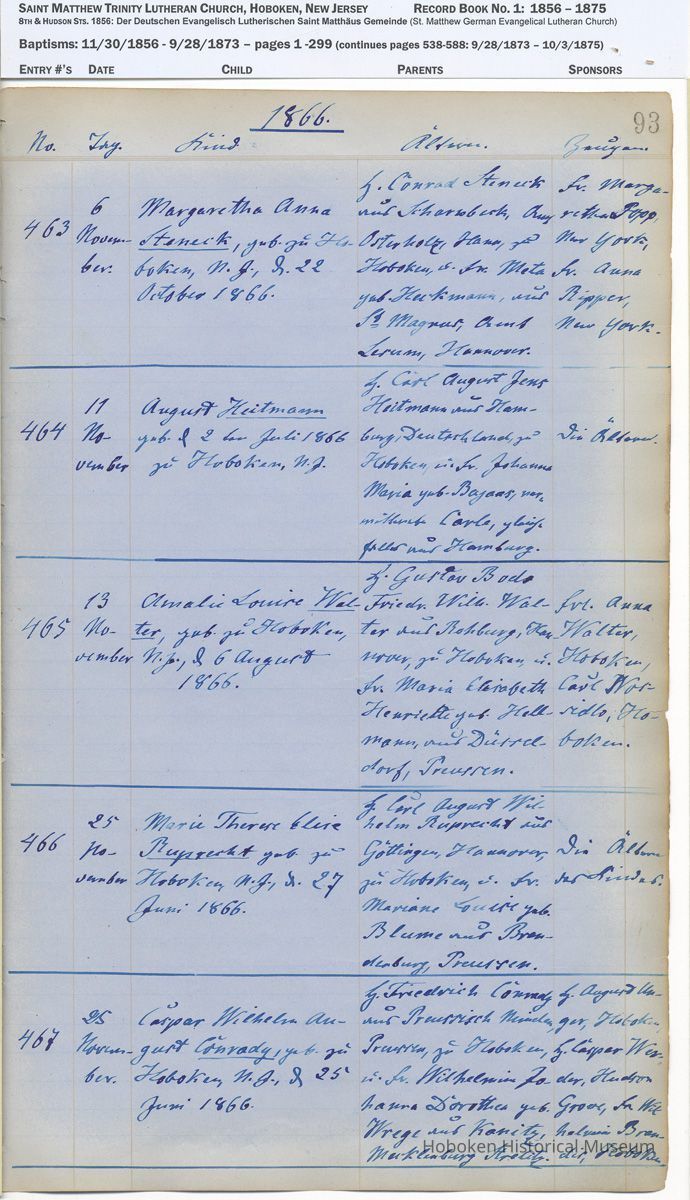 SAINT MATTHEW TRINITY LUTHERAN CHURCH, HOBOKEN, NEW JERSEY RECORD BOOK NO. 1: 1856 – 1875
8TH & HUDSON STS. 1856: Der Deutschen Evangelisch Lutherischen Saint Matthäus Gemeinde (St. Matthew German Evangelical Lutheran Church)
Baptisms: 11/30/1856 - 9/28/1873 – pages 1 -299 (continues pages 538-588: 9/28/1873 – 10/3/1875)
ENTRY #'S DATE CHILD PARENTS SPONSORS
1866.
93
No. Tag. Kind Ältern. Zeugen.
463
6
Novem-
ber.
Margaretha Anna
Steneck, geb. zu Ho-
boken, N. J., d. 22
October 1866.
H. Conrad Steneck
aus Scharmbeck, Amt
Osterholz, Hann, zu
Hoboken, u. Fr. Meta
geb. Heckmann, aus
St Magnus, Amt
Lesum, Hannover.
Fr. Marga-
retha Popp,
New York,
Fr. Anna
Ripper,
New York.
464
11
No-
vember
August Heitmann
geb. d 2 ten Juli 1866
zu Hoboken, N. J.
H. Carl August Jens
Heitmann aus Ham-
burg, Deutschland, zu
Hoboken, u. Fr. Johanna
Maria geb. Bajaas, ver-
wittwete Carle, gleich-
falls aus Hamburg.
Die Ältern.
465
13
No-
vember
Amalie Louise Wal-
ter, geb. zu Hoboken,
N. J., d 6 August
1866.
H. Gustav Bodo
Friedr. Wilh. Wal-
ter aus Rehburg, Han-
nover, zu Hoboken, u.
Fr. Maria Elisabeth
Henriette geb. Hell-
mann, aus Düssel-
dorf, Preussen.
Frl. Anna
Walter,
Hoboken,
Carl Wos-
sidlo, Ho-
boken.
466
25
No-
vember
Marie Therese Elise
Ruprecht geb. zu
Hoboken, N. J., d. 27
Juni 1866.
H. Carl August Wil-
helm Ruprecht aus
Göttingen, Hannover,
zu Hoboken, u. Fr.
Mariane Louise geb.
Blume aus Bran-
denburg, Preussen.
Die Ältern
des Kindes.
467
25
Novem-
ber.
Caspar Wilhelm Au-
gust Conrady, geb. zu
Hoboken, N. J., d 25
Juni 1866.
H. Friedrich Conrady
aus Preussisch Minden,
Preussen, zu Hoboken,
u. Fr. Wilhelmin Jo-
hanna Dorothea geb.
Wrege aus Kanitz,
Mecklenburg Strelitz.
H. August Un-
ger, Hoboken,
H. Caspar Wer-
der, Hudson
Grove, Fr. Wil-
helmin Bran-
des, Hoboken.
Hoboken Historical Museum